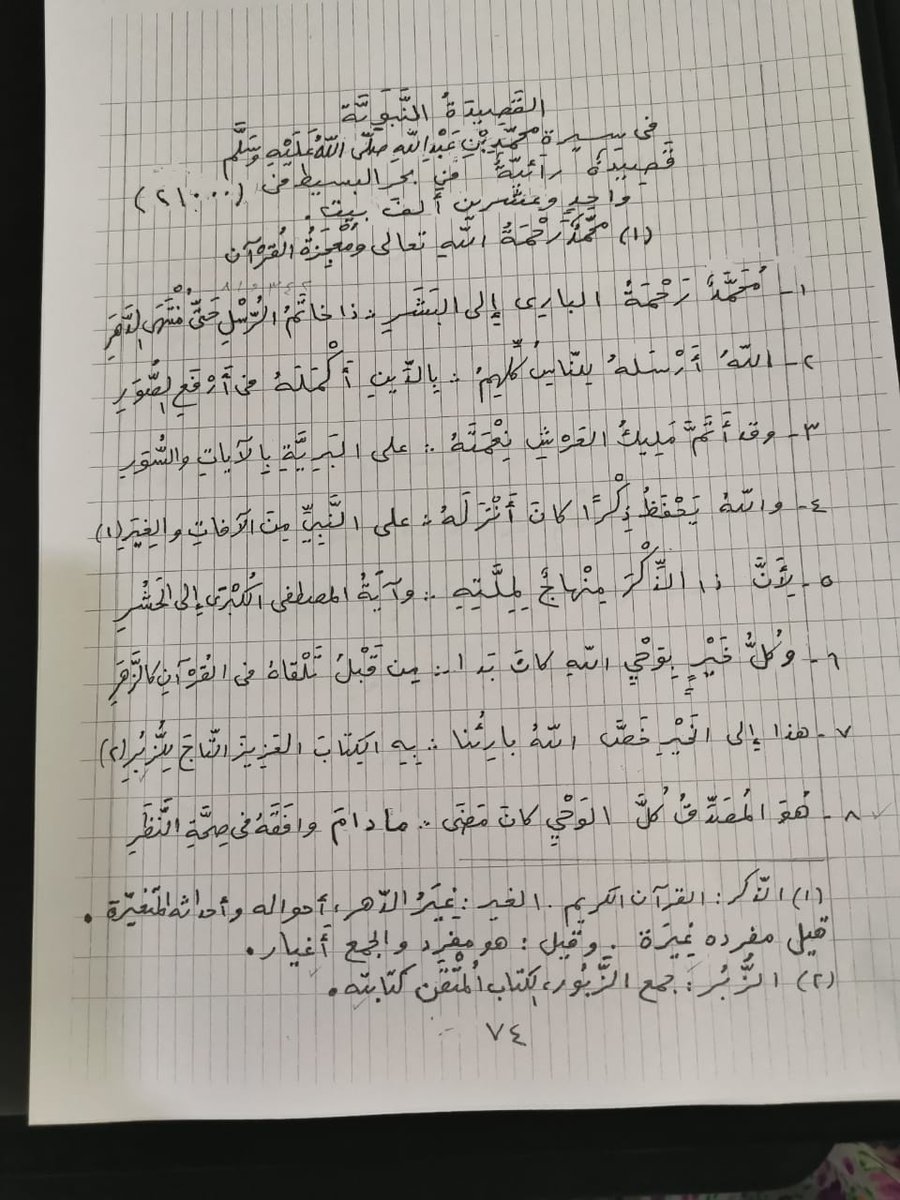 القَصِيدَةُ النَّبَوِيَّة
فى سِيرة محمّدِ بْنِ عَبْدِ اللّٰهِ صلّى اللّٰهُ عَلَيْهِ وَسَلَّم
قَصِيدَةٌ رَائِيَّةٌ مِن بحر البسيط فى (٢١٠٠٠)
واحِدٍ وعشرين ألفَ بيت.
(١) محمّدٌ رَحْمَةُ اللّٰهِ تعالى ومُعْجِزَةُ القُرْآن
١- مُحَمَّدٌ رَحْمَةُ البارى إِلى البَشَرِ ∴ ذا خاتَمُ الرُّسْلِ حَتَّى مُنْتَهَى الدَّهَرِ
٢- اللّٰهُ أَرْسَلهُ لِلنّاسِ كُلِّهِمُ ∴ بِالدِّينِ أَكْمَلَهُ فى أَرْفَعِ الصُّوَرِ
٣- وقد أَتَمَّ مَلِيكُ العَرْشِ نِعْمَتَهُ ∴ على البَرِيَّةِ بِالآياتِ والسُّوَرِ
٤- واللّٰهُ يَحْفَظُ ذِكْرًا كانَ أَنْزَلَهُ ∴ على النَّبِيِّ مِنَ الآفاتِ والغِيَرِ (١)
٥- لِأَنَّ ذا الذِّكْرَ مِنْهاجٌ لِمِلَّتِهِ ∴ وآيَةُ المصطفى الكُبْرَى إِلى الحَشُرِ
٦- وكُلُّ خَيْرٍ بِوَحْيِ اللّٰهِ كانَ بَدا ∴ مِن قَبْلُ تَلْقاهُ فى القُرْآنِ كالزَّهَرِ
٧- هذا إِلى الخَيْرِ خَصَّ اللّٰهُ بارِئُنا ∴ بِهِ الكِتابَ العَزِيزَ التّاجَ لِلزُّبُرِ (٢)
٨- هُوَ المُصَدِّقُ كُلَّ الوَحْيِ كانَ مَضَى ∴ مادامَ وافَقَهُ فى صِحَّةِ النَّظَرِ
(١) الذّكر: القرآن الكريم. الغير: غِيَرُ الدّهر، أحواله وأحداثه المتغيّرة.
قيل مفرده غِيَرَة. وقيل: هو مفرد والجمع أَغيار.
(٢) الزُّبُر: جمع الزَّبُور، الكتاب المُتْقَن كتابته.
٧٤